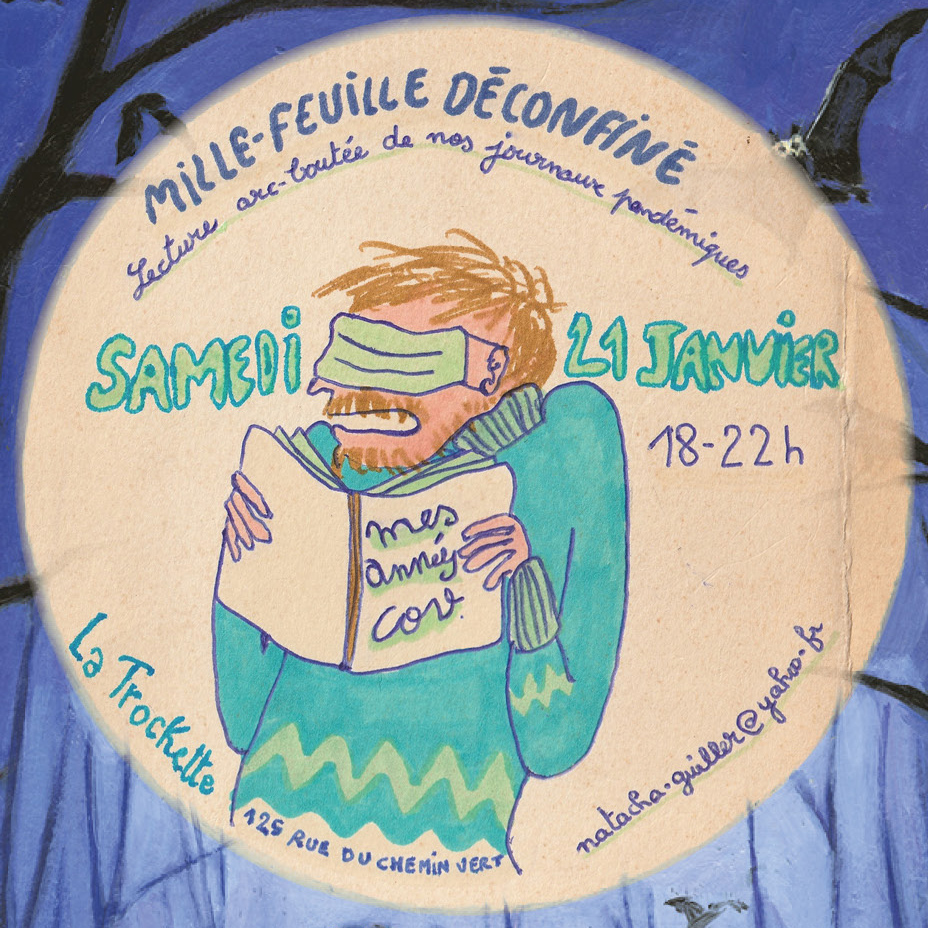 MiLLE-FEUiLLE DÉCONFiNÉ
Lecture arc-boutée de nos journaux pandémiques
SAMEDi 21 JANViER
18-22h
mes
années
cov.
La Trockette
125 RUE DU CHEMiN VERT
natacha.guiller@yahoo.fr